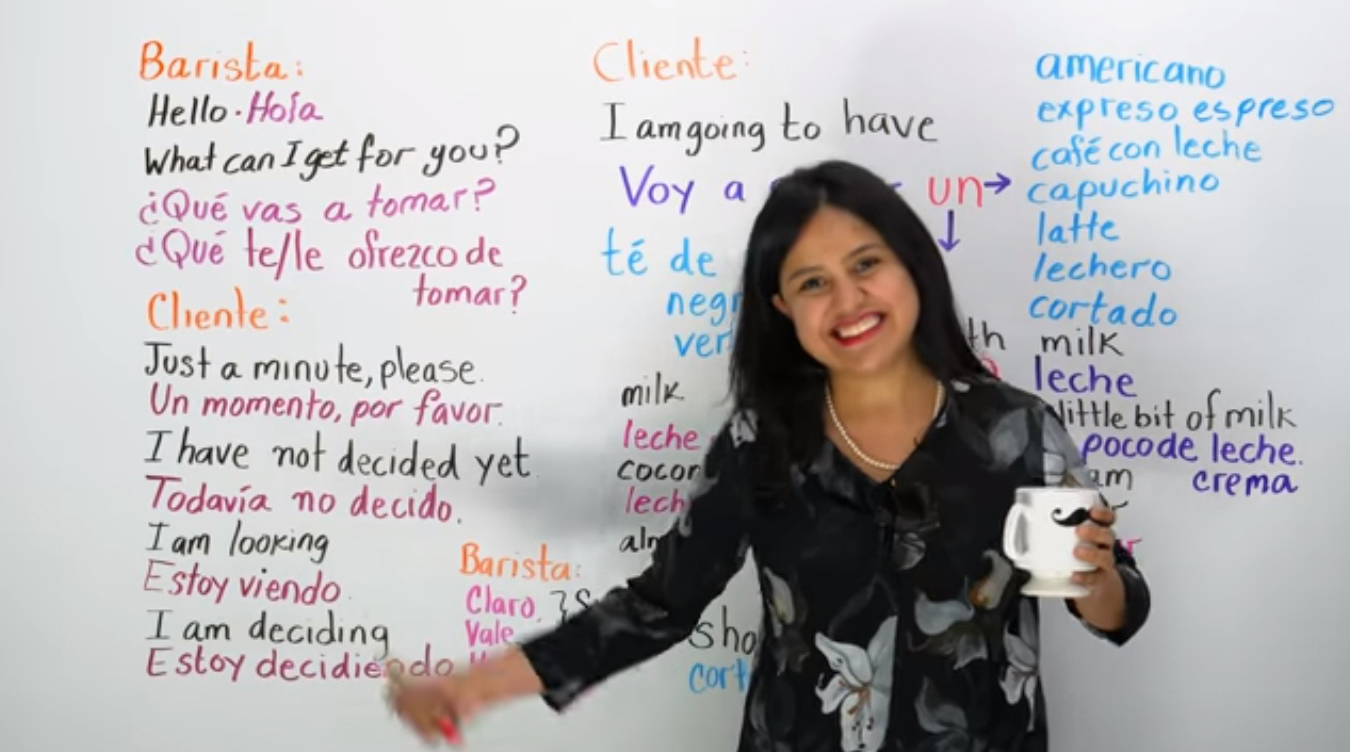 Barista:
Hello · Hola
What can I get for you?
¿Qué vas a tomar?
¿Qué te/le ofrezco de
tomar?
Cliente:
Just a minute, please.
Un momento, por favor.
I have not decided yet.
Todavía no decido.
I am looking
Estoy viendo.
I am deciding
Estoy decidiendo
Barista:
Claro,
Vale
Cliente:
I am going to have
Voy a un →
té de
milk
leche
americano
expreso espreso
café con leche
capuchino
latte
lechero
cortado
milk
leche
little bit of milk
poco de leche.
crema